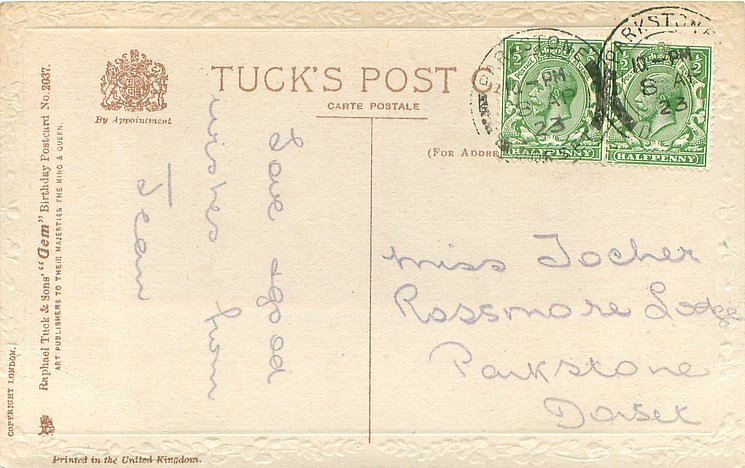 TUCK'S POST C
CARTE POSTALE
By Appointment
(FOR ADDRE
Raphael Tuck & Sons' "Gem" Birthday Postcard No. 2037.
ART PUBLISHERS TO THEIR MAJESTIES THE KING & QUEEN.
COPYRIGHT LONDON.
Printed in the United Kingdom.
PARKSTONE
PM
8 AP
23
HALFPENNY
PARKSTONE
10 PM
8 A
23
HALFPENNY
love & good
wishes from
Jean
Miss Tocher
Rossmore Lodge
Parkstone
Dorset